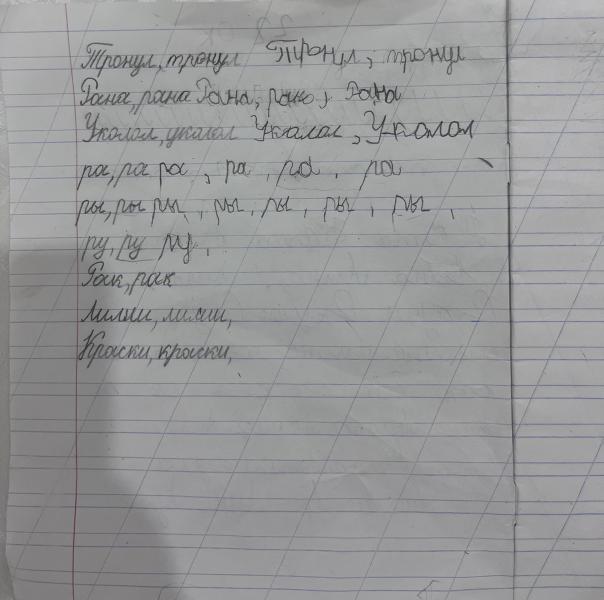 Тронул, тронул Тронул, тронул
Рана, рана Рана, рана, Рана
Уколол, уколол Уколол, Уколол
ра, ра ра, ра, ра, ра
ры, ры ры, ры, ры, ры, ры,
ру, ру ру,
Рак, рак
Лилии, лилии,
Краски, краски,